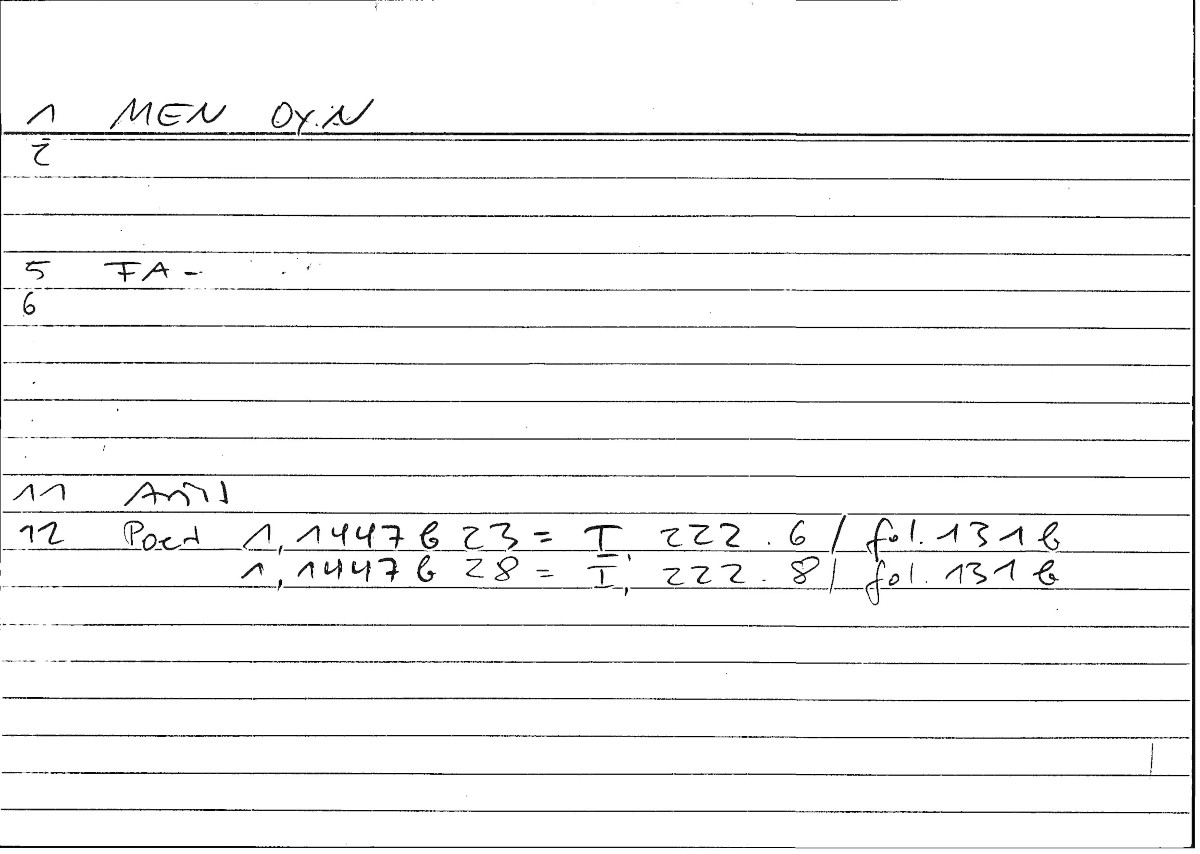 1 MEN OY.N
2
5 FA-
6
11
12 Poet 1,1447b 23 = I, 222.6 / fol. 131b
1,1447b 28 = I, 222.8 / fol. 131b